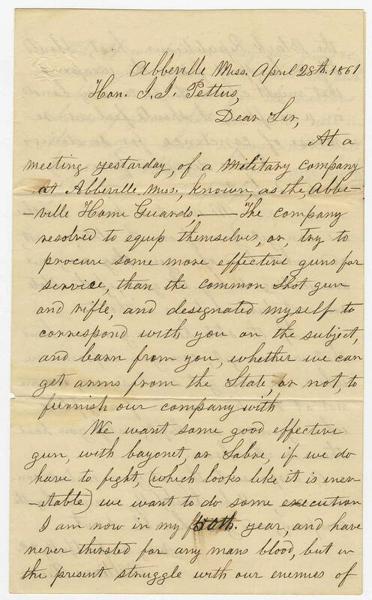 Abbeville Miss. April 28th. 1861
Hon. J. J. Pettus,
Dear Sir,
At a
meeting yestarday, of a Military Company
at Abbeville Miss, known, as the, Abbe-
-ville Home Guards. — The company
resolved to equip themselves, or, try to
procure some more effective guns for
service, than the common shot gun
and rifle, and designated myself to
correspond with you on the subject,
and learn from you, whether we can
get arms from the State or not, to
furnish our company with
We want some good effective
gun, with bayonet or Sabre, if we do
have to fight (which looks like it is inev-
-itable) we want to do some execution
I am now in my 50th. year, and have
never thirsted for any mans blood, but in
the present struggle with our enemies of